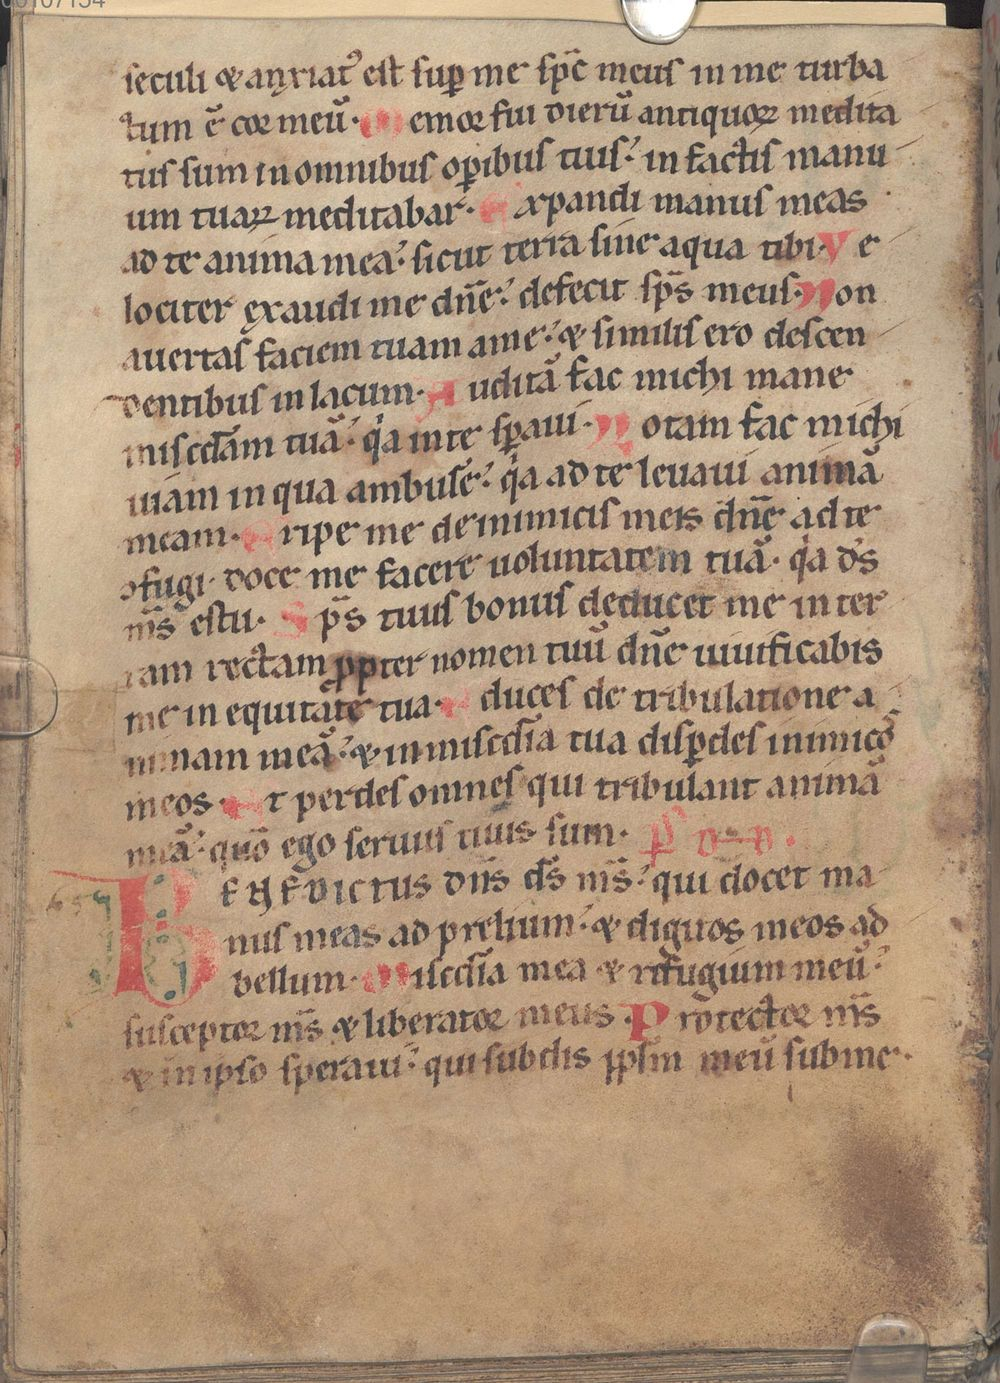 00107154
seculi & anxiat᾽ est sup̱ me spc̄ meus in me turba
tum ē cor meū· Memor fui dierū antiquoꝝ medita
tus sum in omnibus op̱ibus tuis: in factis manu
um tuaꝝ meditabar· Expandi manus meas
ad te anima mea: sicut terra sine aqua tibi· Ve
lociter exaudi me dn̄e: defecit sp̄s meus· Non
auertas faciem tuam a me: & similis ero descen
dentibus in lacum· Auditā fac michi mane
misc̄d̄am tuā: q̇a in te sp̱aui· Notam fac michi
uiam in qua ambulē: q̇a ad te leuaui animā
meam· Eripe me de inimicis meis dn̄e ad te
ꝯfugi· doce me facere uoluntatem tuā· q̇a d̄s
m̄s es tu· Sp̄s tuus bonus deducet me in ter
ram rectam ꝓpter nomen tuū dn̄e uiuificabis
me in equitate tua· Educes de tribulatione a
nimam meā: & in misc̄d̄ia tua disp̱des inimicos
meos· Et perdes omnes qui tribulant animā
meā: quō ego seruus tuus sum· p̄s
Benedictus dn̄s d̄s m̄s: qui docet ma
nus meas ad prelium: & digitos meos ad
bellum· Misc̄d̄ia mea & refugium meū:
susceptor m̄s & liberator meus· Protector m̄s
& in ipso speraui: qui subdis pp̱lm meū sub me·